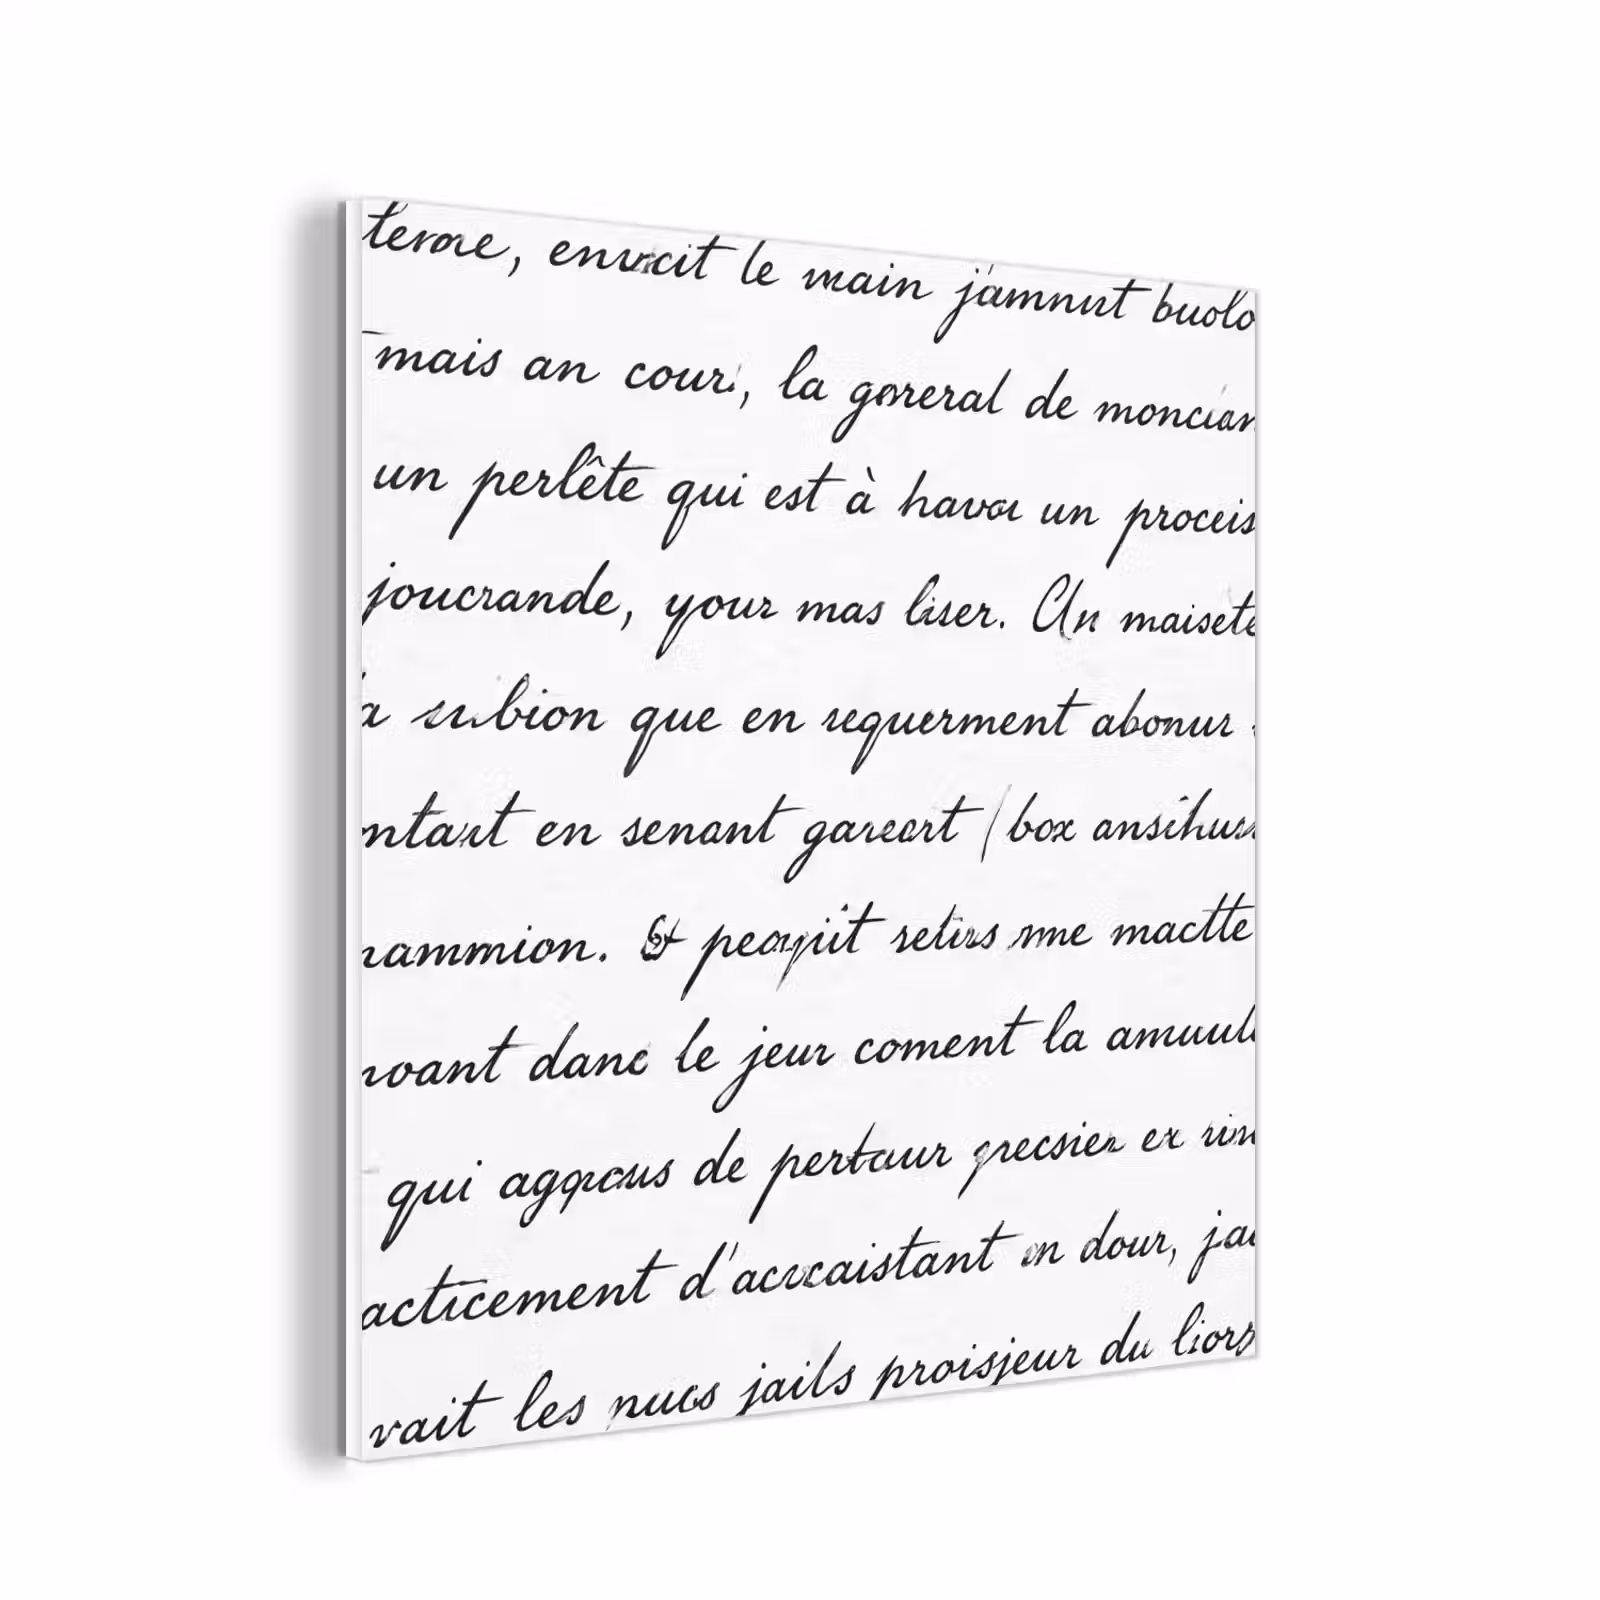 terme, envcit le main j'amnut buolo
mais an cour, la goreral de moncian
un perlête qui est à havoi un proceis
joucrande, your mas liser. Un maisete
a subion que en requerment abonur
ntant en senant gareart box ansihus
nammion. Et peoyiit retirs me mactte
noant danc le jeur coment la amuul
qui agqpcus de pertaur grecsier er rin
acticement d'acvcaistant en dour, jai
vait les nucs jails proisjeur du liors